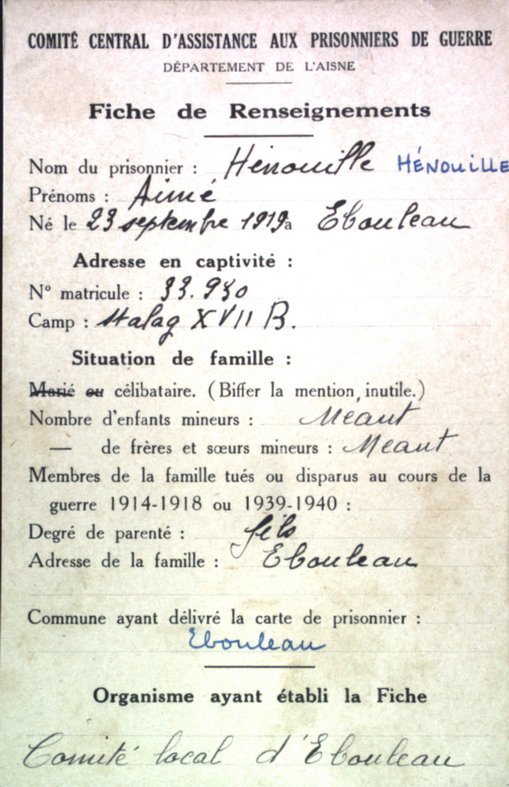 COMITÉ CENTRAL D'ASSISTANCE AUX PRISONNIERS DE GUERRE
DÉPARTEMENT DE L'AISNE
Fiche de Renseignements
Nom du prisonnier : Hénouille HÉNOUILLE
Prénoms : Aimé
Né le 23 septembre 1919 à Ebouleau
Adresse en captivité :
N° matricule : 33.930
Camp : Stalag XVII B.
Situation de famille :
Marié ou célibataire. (Biffer la mention inutile.)
Nombre d'enfants mineurs : Néant
— de frères et sœurs mineurs : Néant
Membres de la famille tués ou disparus au cours de la
guerre 1914-1918 ou 1939-1940 :
Degré de parenté : fils
Adresse de la famille : Ebouleau
Commune ayant délivré la carte de prisonnier :
Ebouleau
Organisme ayant établi la Fiche
Comité local d'Ebouleau